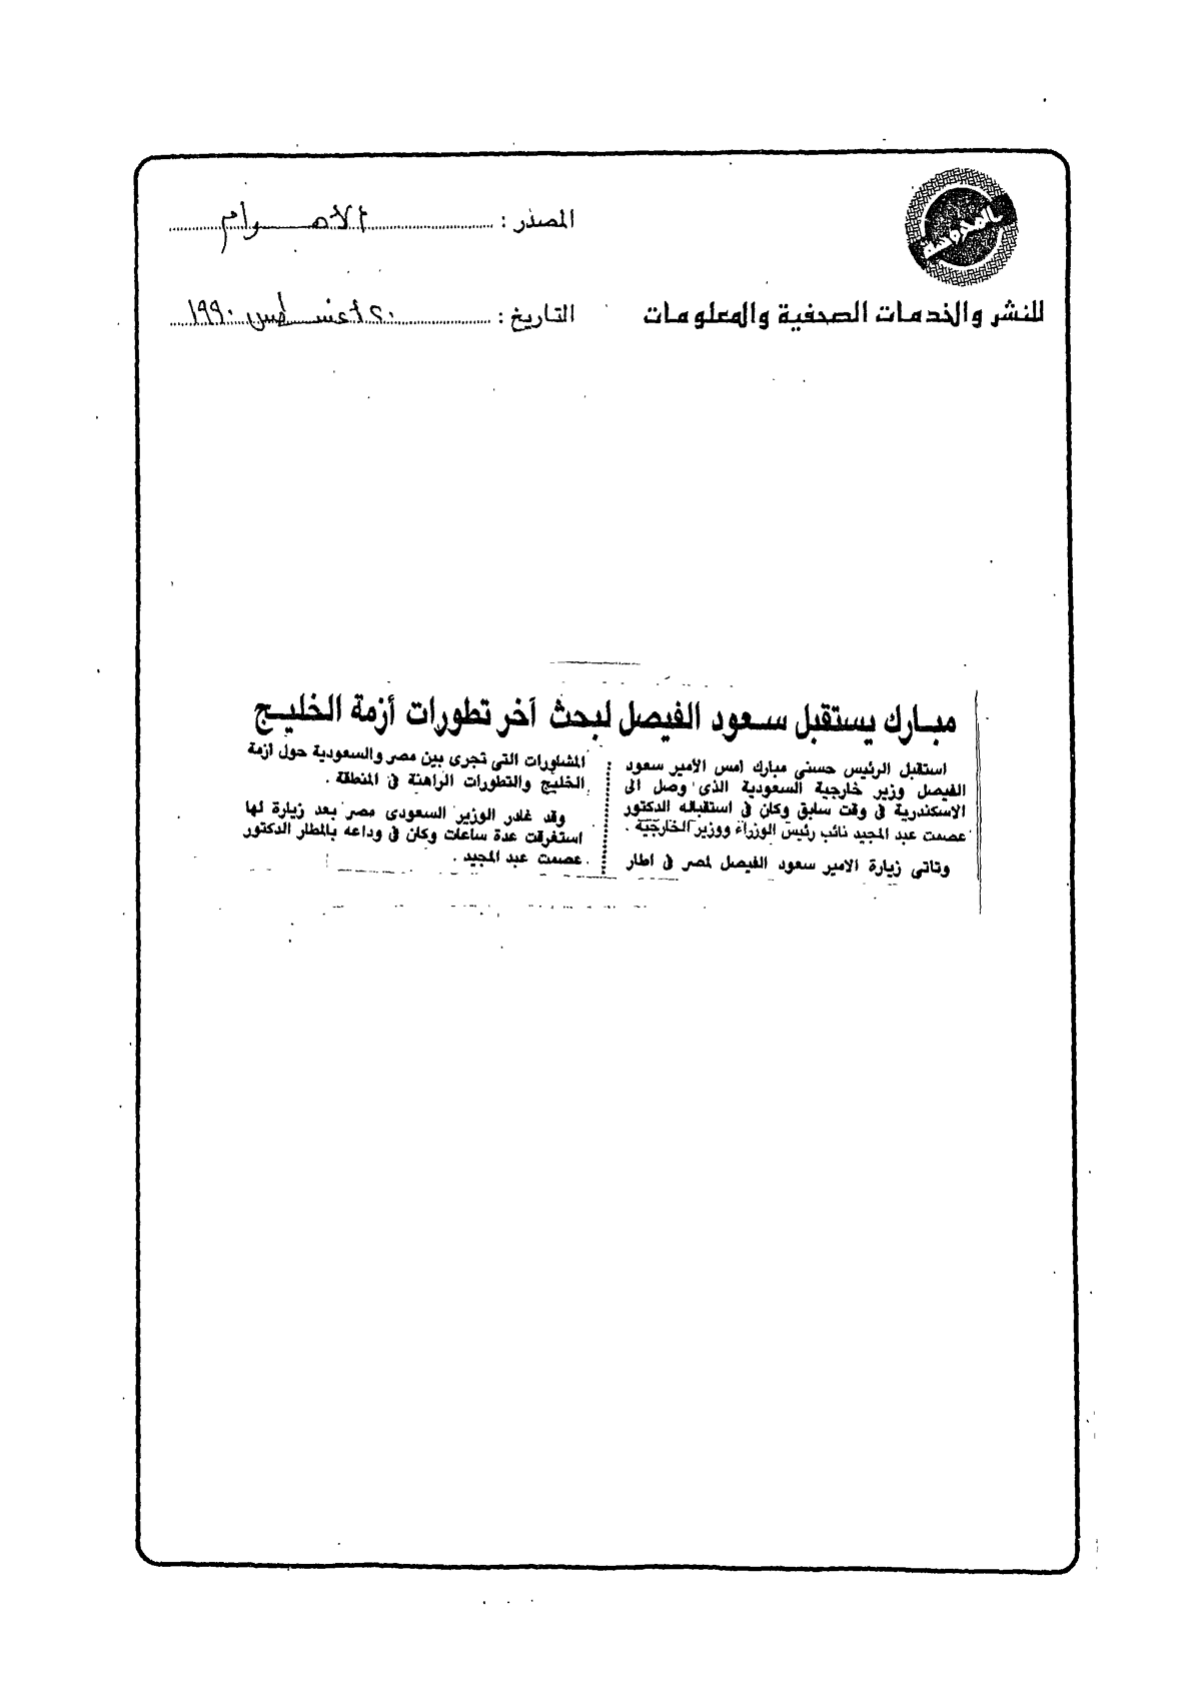 المصدر : الأهـــرام
للنشر والخدمات الصحفية والمعلومات
التاريخ : ٢٠ أغسطس ١٩٩٠
مبـارك يستقبل سـعود الفيصل لبحث آخر تطورات أزمة الخليـج
استقبل الرئيس حسنى مبارك امس الامير سعود
الفيصل وزير خارجية السعودية الذى وصل الى
الاسكندرية فى وقت سابق وكان فى استقباله الدكتور
عصمت عبد المجيد نائب رئيس الوزراء ووزير الخارجية .
وتاتى زيارة الامير سعود الفيصل لمصر فى اطار
المشاورات التى تجرى بين مصر والسعودية حول ازمة
الخليج والتطورات الراهنة فى المنطقة .
وقد غادر الوزير السعودى مصر بعد زيارة لها
استغرقت عدة ساعات وكان فى وداعه بالمطار الدكتور
عصمت عبد المجيد .